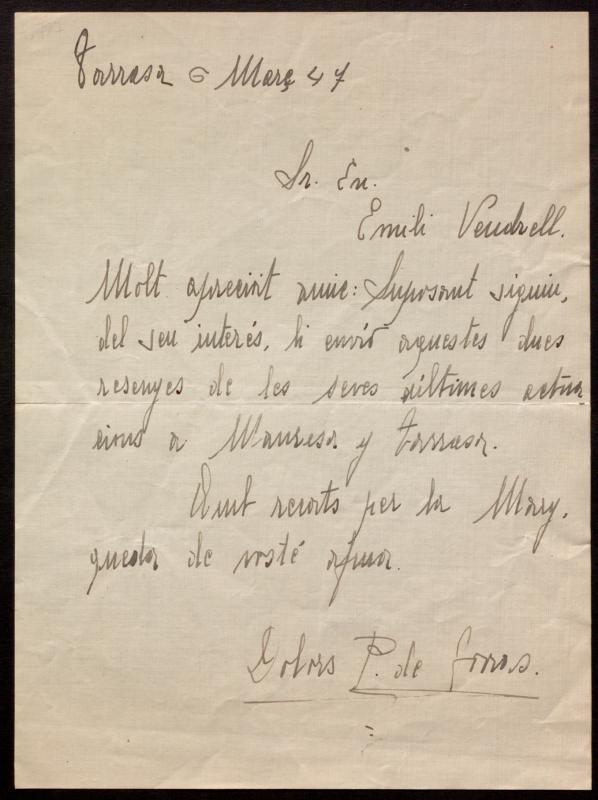 Tarrasa 6 Març 47
Sr. En.
Emili Vendrell.
Molt apreciat amic: Suposant siguin,
del seu interés, li envió aquestes dues
resenyes de les seves últimes actua
cions a Manresa y Tarrasa.
Amb recorts per la Mary,
queda de vosté afma.
Dolors P. de